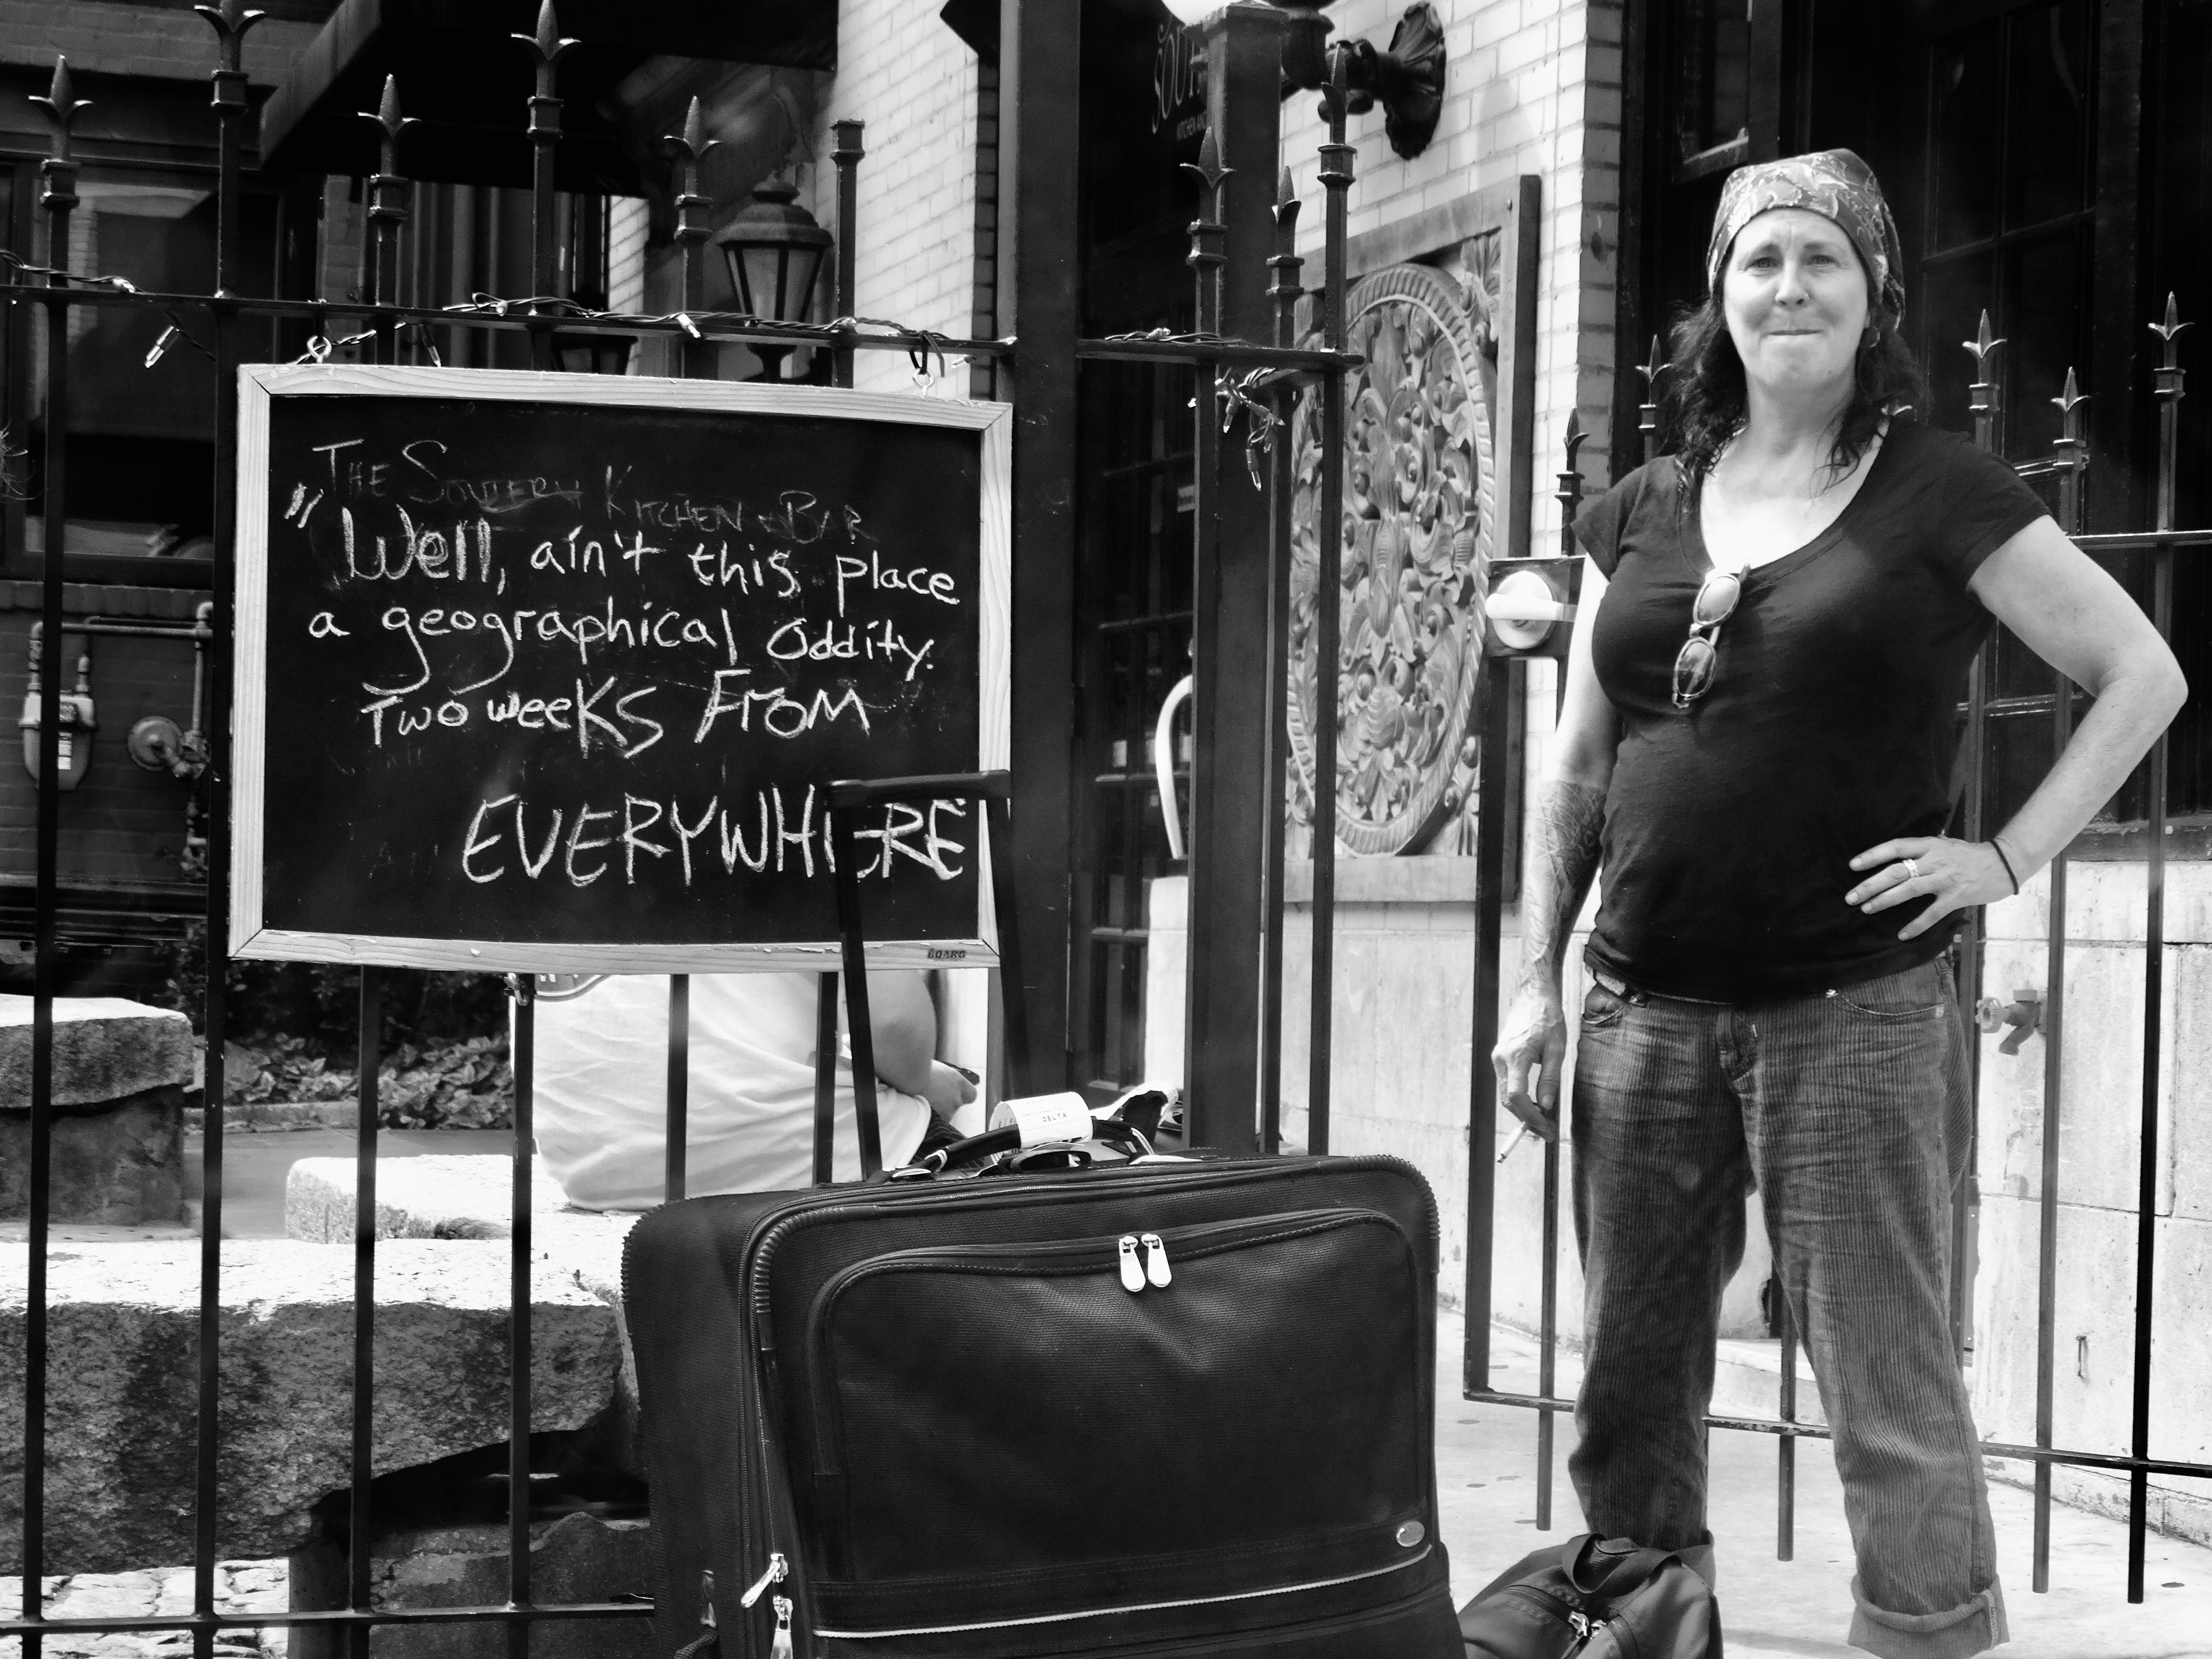 SOUTH
KITCHEN AND
THE SOUTHERN KITCHEN & BAR
"Well, ain't this place
a geographical oddity.
Two weeKS FROM
EVERYWHERE
BOARD
DELTA